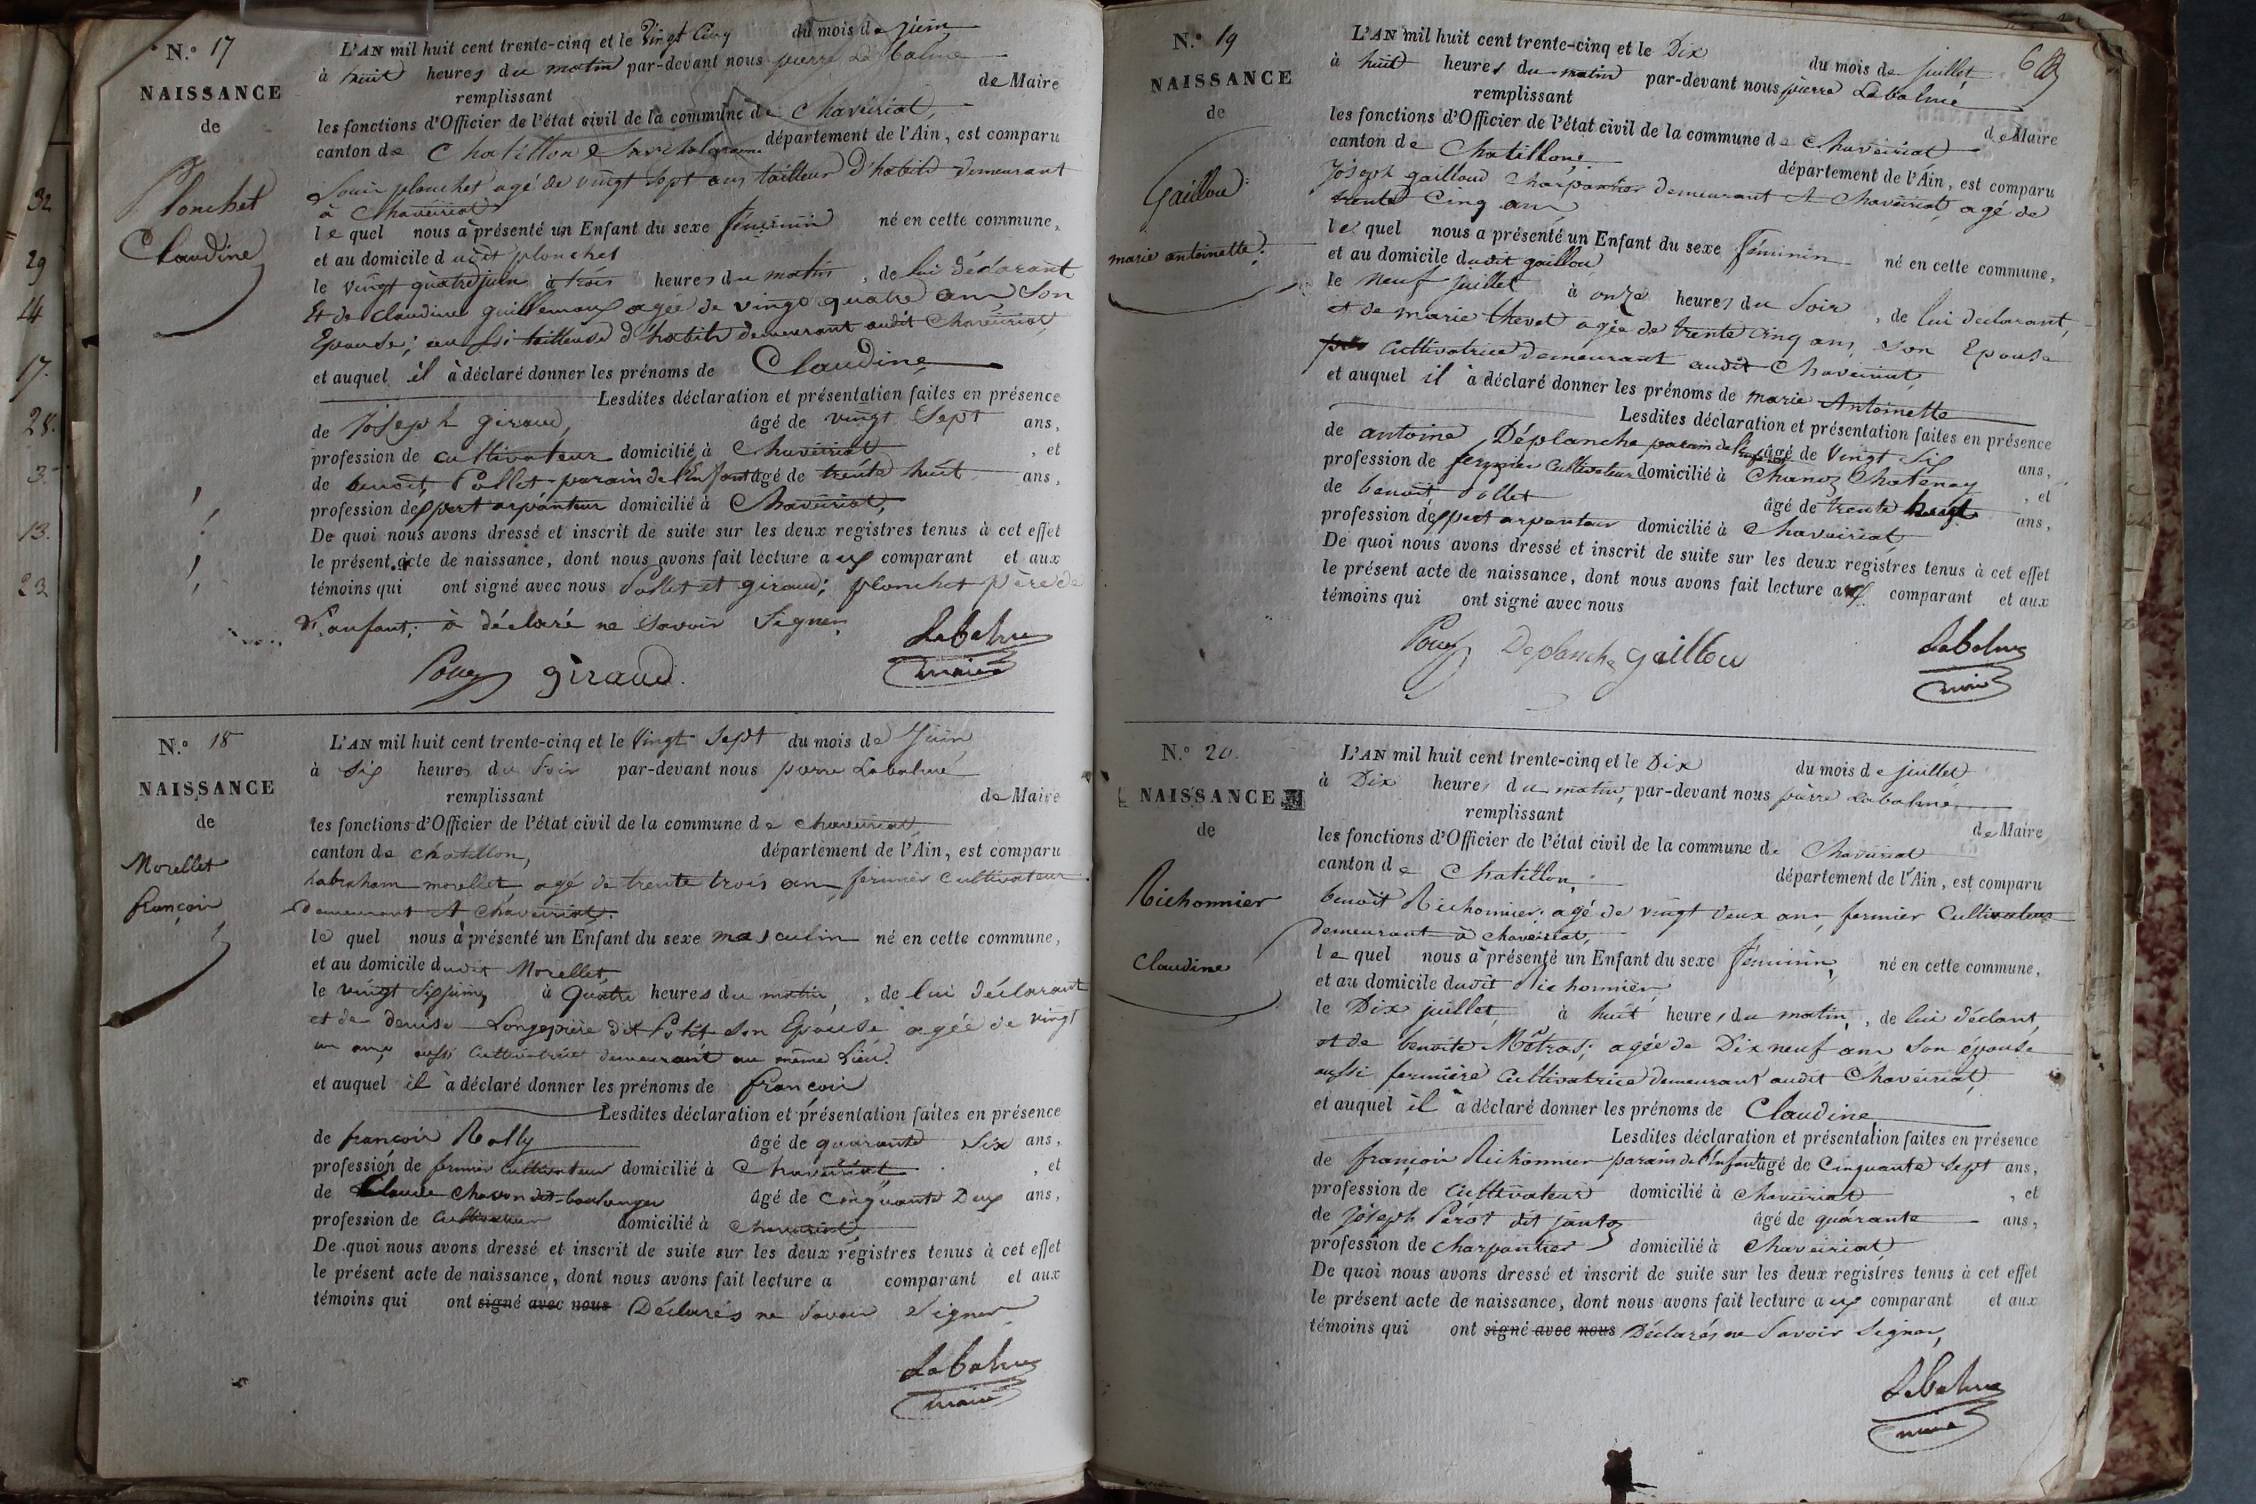 32
29
14
17.
28.
3.
13.
23
N.° 17
NAISSANCE
de
Plonchet
Claudine
L'AN mil huit cent trente-cinq et le Vingt Cinq du mois de juin
à huit heures du matin par-devant nous pierre Labalme
de Maire
remplissant
les fonctions d'Officier de l'état civil de la commune de Chaveiriat,
canton de Chatillon département de l'Ain, est comparu
Louis plonchet agé de vingt sept ans tailleur d'habits demeurant
à Chaveiriat
le quel nous à présenté un Enfant du sexe féminin né en cette commune,
et au domicile dudit plonchet
le vingt quatre juin à trois heures du matin, de lui déclarant
Et de claudine guillemaux agée de vingt quatre ans Son
Epouse; aussi tailleuse d'habits demeurant audit Chaveiriat
et auquel il à déclaré donner les prénoms de Claudine
Lesdites déclaration et présentation faites en présence
de Joseph giraud, âgé de vingt Sept ans,
profession de cultivateur domicilié à Chaveiriat, et
de benoit Pollet parain de l'Enfant âgé de trente huit ans,
profession d'expert arpanteur domicilié à Chaveiriat,
De quoi nous avons dressé et inscrit de suite sur les deux registres tenus à cet effet
le présent acte de naissance, dont nous avons fait lecture aux comparant et aux
témoins qui ont signé avec nous Pollet et giraud; plonchet père de
L'anfant; à déclaré ne Savoir Signer
Labalme
maire
giraud.
N.° 18
NAISSANCE
de
Morellet
françois
L'AN mil huit cent trente-cinq et le Vingt Sept du mois de Juin
à six heures du Soir par-devant nous pierre Labalme
remplissant de Maire
les fonctions d'Officier de l'état civil de la commune de chaveiriat
canton de chatillon, département de l'Ain, est comparu
habraham morellet agé de trente trois an fermier Cultivateur
demeurant A Chaveiriat.
le quel nous à présenté un Enfant du sexe masculin né en cette commune,
et au domicile dudit Morellet,
le vingt six juin, à Quatre heures du matin, de lui déclarant
et de denise Longepiere dit Potit Son Epouse agée de vingt
un ans aussi Cultivatrice demeurant au même Lieu.
et auquel il à déclaré donner les prénoms de françois
Lesdites déclaration et présentation faites en présence
de françois Rolly âgé de quarante Six ans,
profession de fermier Cultivateur domicilié à Chaveiriat, et
de Claude Chavon dit boulanger âgé de Cinquante Deux ans,
profession de Cultivateur domicilié à Chaveiriat
De quoi nous avons dressé et inscrit de suite sur les deux registres tenus à cet effet
le présent acte de naissance, dont nous avons fait lecture a comparant et aux
témoins qui ont signé avec nous Déclarés ne Savoir Signer
Labalme
maire
6
N.° 19
NAISSANCE
de
Gaillou
marie antoinette.
L'AN mil huit cent trente-cinq et le Dix du mois de juillet
à huit heures du matin par-devant nous pierre Labalme
remplissant de Maire
les fonctions d'Officier de l'état civil de la commune de Chaveiriat
canton de Chatillon, département de l'Ain, est comparu
Joseph gailloud Charpantier demeurant A Chaveiriat, agé de
trente Cinq ans
le quel nous a présenté un Enfant du sexe féminin né en cette commune,
et au domicile dudit gaillou
le neuf juillet à onze heures du Soir, de lui declarant,
et de marie thevet agée de trente cinq ans, Son Epouse
Cultivatrice demeurant audit Chaveiriat,
et auquel il à déclaré donner les prénoms de marie Antoinette
Lesdites déclaration et présentation faites en présence
de antoine Déplanche parain de l'enfant âgé de Vingt Six ans,
profession de fermier Cultivateur domicilié à Chanoz Chatenay, et
de benoit Pollet âgé de trente huit ans,
profession d'expert arpanteur domicilié à Chaveiriat
De quoi nous avons dressé et inscrit de suite sur les deux registres tenus à cet effet
le présent acte de naissance, dont nous avons fait lecture aux comparant et aux
témoins qui ont signé avec nous
Deplanche gaillou
Labalme
maire
N.° 20.
NAISSANCE
de
Richonnier
Claudine
L'AN mil huit cent trente-cinq et le Dix du mois de juillet
à Dix heures du matin, par-devant nous pierre Labalme
remplissant de Maire
les fonctions d'Officier de l'état civil de la commune de Chaveiriat
canton de Chatillon, département de l'Ain, est comparu
benoit Richonnier; agé de vingt deux ans, fermier Cultivateur
demeurant à chaveiriat,
le quel nous à présenté un Enfant du sexe féminin, né en cette commune,
et au domicile dudit Richonnier,
le Dix juillet, à huit heures du matin, de lui déclant,
et de benoite Métras; agée de Dix neuf ans Son épouse
aussi fermière Cultivatrice demeurant audit Chaveiriat,
et auquel il à déclaré donner les prénoms de Claudine
Lesdites déclaration et présentation faites en présence
de françois Richonnier parain de l'enfant âgé de Cinquante Sept ans,
profession de Cultivateur domicilié à Chaveiriat, et
de Joseph Pérot dit jantoz âgé de quarante ans,
profession de charpantier domicilié à Chaveiriat,
De quoi nous avons dressé et inscrit de suite sur les deux registres tenus à cet effet
le présent acte de naissance, dont nous avons fait lecture aux comparant et aux
témoins qui ont signé avec nous Déclarés ne Savoir Signer,
Labalme
maire